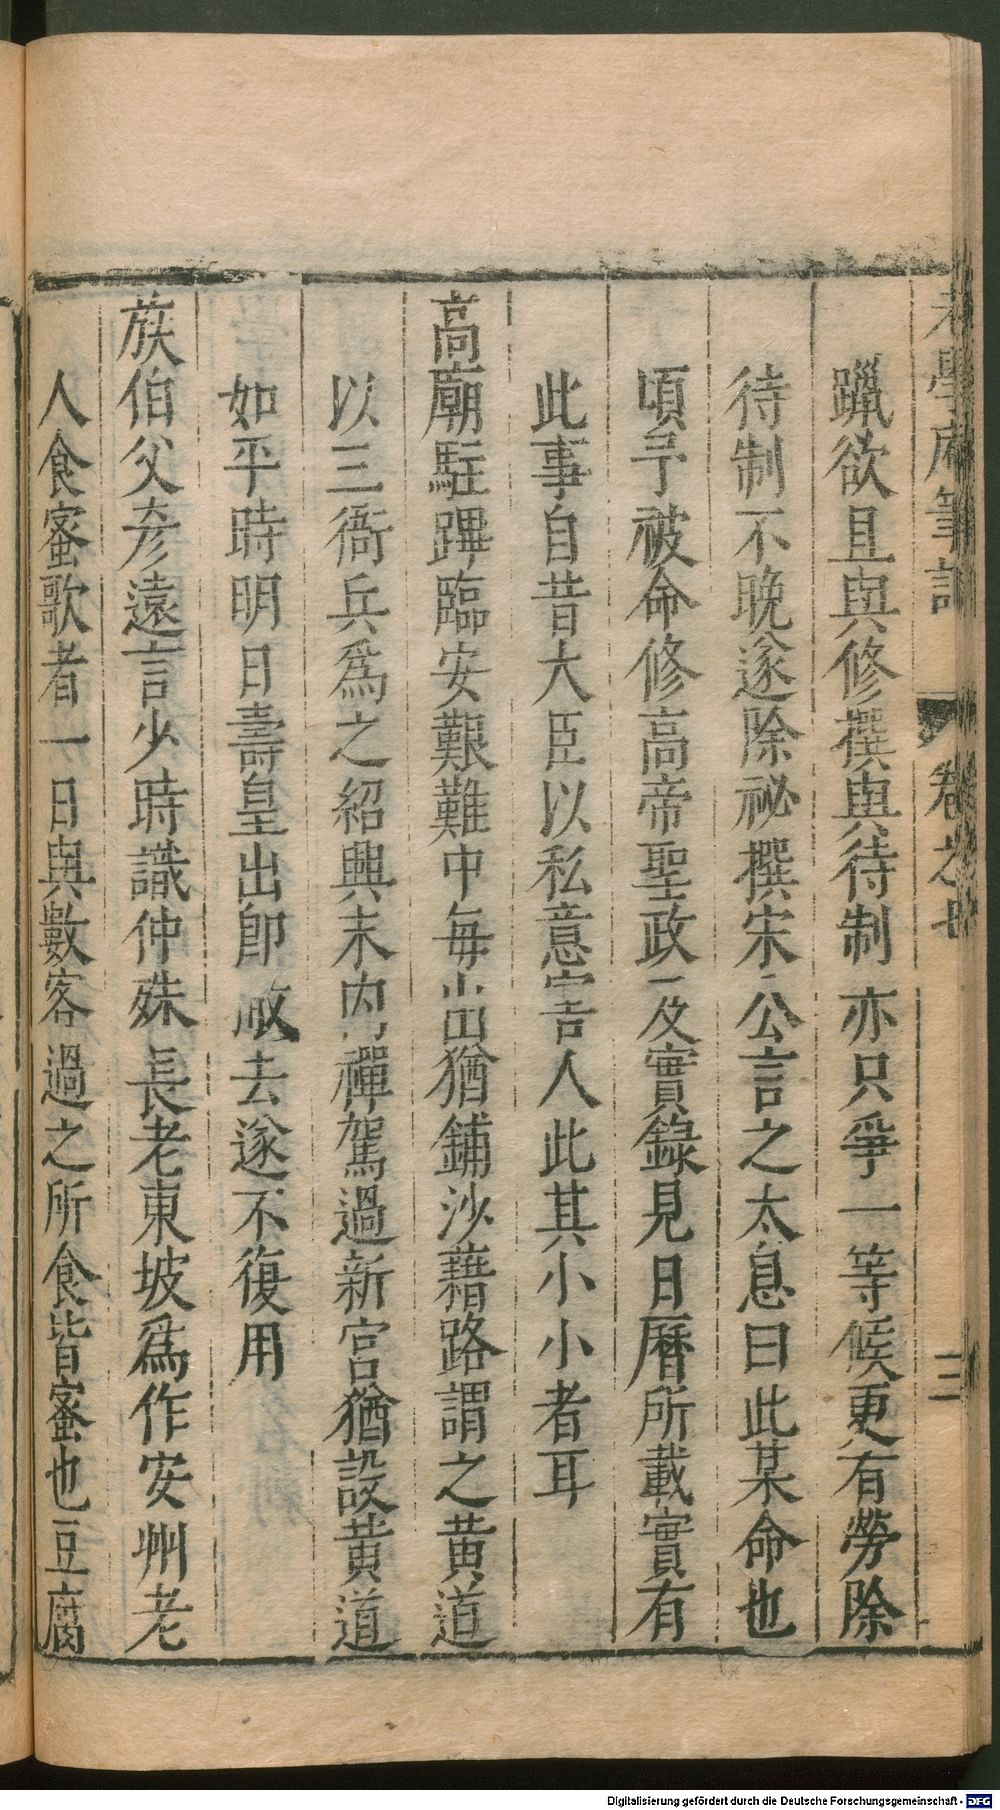 老學庵筆記 卷之七 三
躐欲且與修撰與待制亦只爭一等候更有勞除
待制不晚遂除祕撰宋公言之太息曰此某命也
頃予被命修高帝聖政及實錄見日曆所載實有
此事自昔大臣以私意害人此其小小者耳
高廟駐蹕臨安艱難中每出猶鋪沙藉路謂之黃道
以三衙兵爲之紹興末內禪駕過新宮猶設黃道
如平時明日壽皇出即撤去遂不復用
族伯父彥遠言少時識仲殊長老東坡爲作安州老
人食蜜歌者一日與數客過之所食皆蜜也豆腐
Digitalisierung gefördert durch die Deutsche Forschungsgemeinschaft - DFG